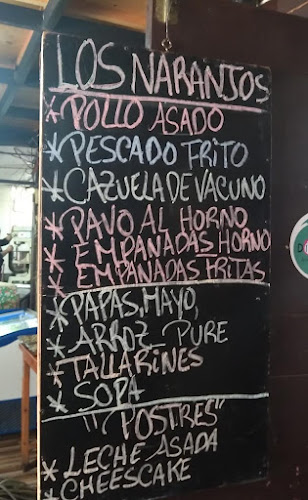 LOS NARANJOS
* POLLO ASADO
* PESCADO FRITO
* CAZUELA DE VACUNO
* PAVO AL HORNO
* EMPANADAS HORNO
* EMPANADAS FRITAS
* PAPAS, MAYO,
* ARROZ PURE
* TALLARINES
* SOPA
"POSTRES"
* LECHE ASADA
* CHEESCAKE